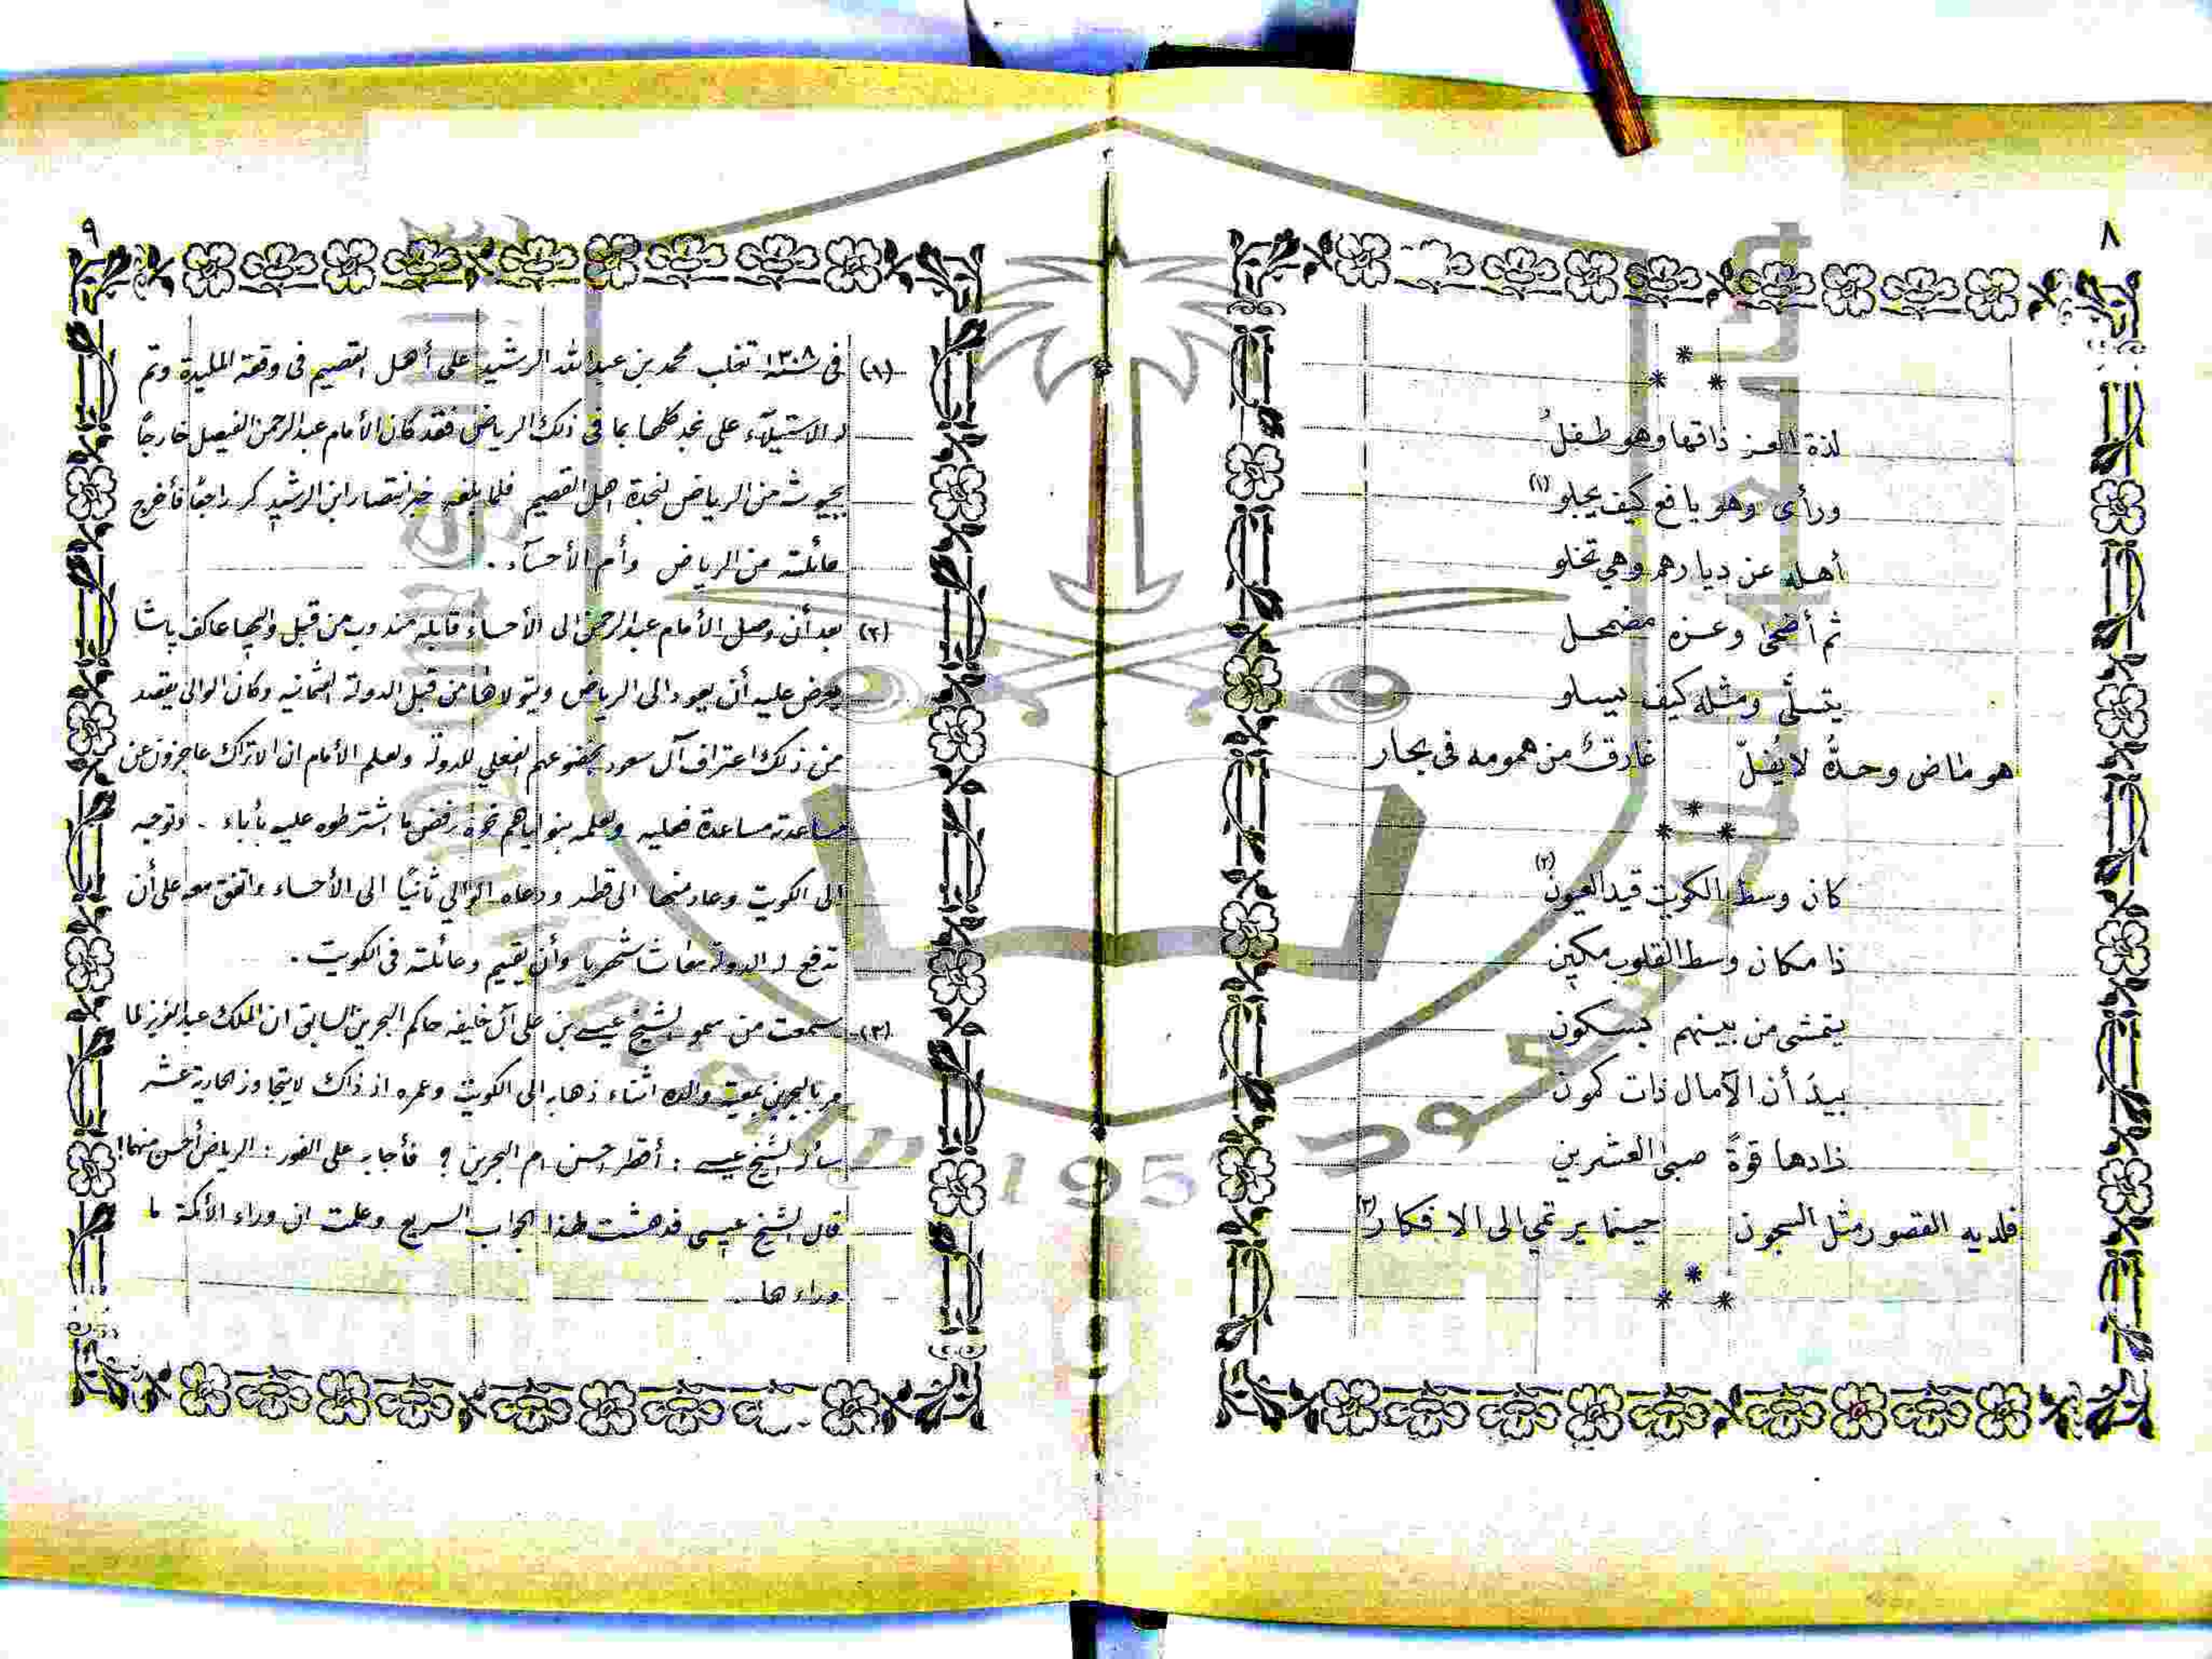 ٨
*
* *
لذة العز ذاقها وهو طفلُ
ورأى وهو يافع كيف يجلو (١)
أهله عن ديارهم وهي تخلو
ثم أضحى وعزه مضمحل
يتسلّى ومثله كيف يسلو
هو ماض وحدهُ لا يُفلّ غارقٌ من همومه في بحار
*
* *
كان وسط الكويت قيد العيون (٢)
ذا مكان وسط القلوب مكين
يتمشى من بينهم بسكون
بيدَ أن الآمال ذات كمون
زادها قوةً صبى العشرين
فلديه القصور مثل السجون حينما يرتمي الى الافكار (٣)
*
* *
٩
(١) في سنة ١٣٠٨ تغلب محمد بن عبد الله الرشيد على أهل القصيم في وقعة المليدة وتم
له الاستيلآء على نجد كلها بما في ذلك الرياض فقد كان الأمام عبد الرحمن الفيصل خارجًا
بجيوشه من الرياض لنجدة اهل القصيم فلما بلغه خبر انتصار ابن الرشيد كر راجعًا فأخرج
عائلته من الرياض وأم الأحسآء .
(٢) بعد أن وصل الأمام عبد الرحمن الى الأحساء قابله مندوب من قبل واليها عاكف باشا
يعرض عليه أن يعود الى الرياض ويتولاها من قبل الدولة العثمانيه وكان الوالي يقصد
من ذلك اعتراف آل سعود بخضوعهم الفعلي للدولة ولعلم الأمام ان الاتراك عاجزون عن
مساعدته مساعدة فعليه ولعلمه بنواياهم نحوه رفض ما اشترطوه عليه بأباء . وتوجه
الى الكويت وعاد منها الى قطر ودعاه الوالي ثانيًا الى الأحساء واتفق معه على أن
تدفع له الدولة معاشا شهريا وأن يقيم وعائلته في الكويت .
(٣) سمعت من سمو الشيخ عيسى بن علي آل خليفه حاكم البحرين السابق ان الملك عبد العزيز لما
مر بالبحرين بمعية والده اثناء ذهابه الى الكويت وعمره اذ ذاك لا يتجاوز الحادية عشر
سأله الشيخ عيسى : أقطر احسن ام البحرين ؟ فأجابه على الفور : الرياض أحسن منهما!
قال الشيخ عيسى فدهشت لهذا الجواب السريع وعلمت ان وراء الأكمة ما
وراءها .
195